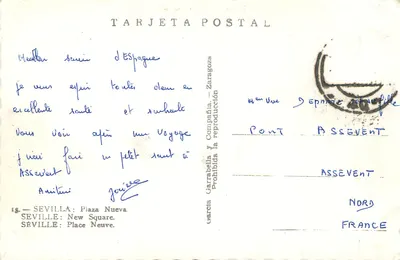 TARJETA POSTAL
Meilleur souvenir d'Espagne
je vous espère toutes deux en
excellente santé et souhaite
vous voir après mon voyage
J'irai faire un petit saut à
ASSEVENT
Amitiés
13. — SEVILLA: Plaza Nueva.
SEVILLE: New Square.
SRVILLE: Place Neuve.
García Garrabella y Compañía. - Zaragoza
Prohibida la reproducción
Vve
PONT ASSEVENT
ASSEVENT
NORD
FRANCE